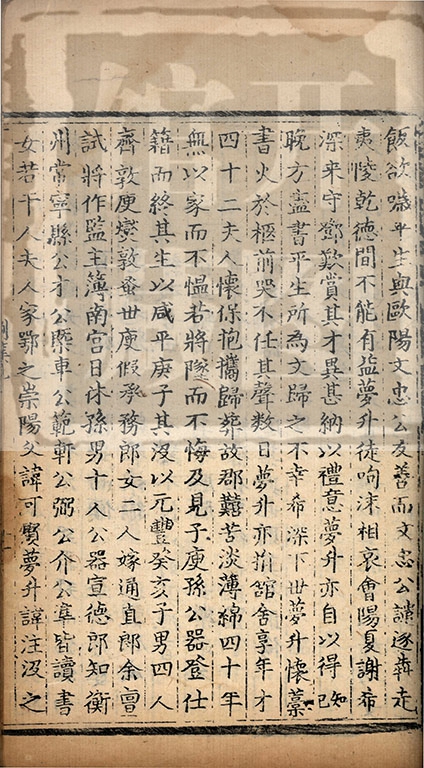 飯欲噦平生與歐陽文忠公友善而文忠公謫逐犇走
夷陵乾德間不能有益夢升徒呴沫相哀會陽夏謝希
深来守鄧歎賞其才異甚納以禮意夢升亦自以得知
晚方盡書平生所為文歸之不幸希深下世夢升懷藁
書火於柩前哭不任其聲数日夢升亦捐舘舍享年才
四十二夫人懷保抱攜歸葬故郡艱苦淡薄綿四十年
無以家而不愠若將墜而不悔及見子庾孫公器登仕
籍而終其生以咸平庚子其沒以元豐癸亥子男四人
齊敦庾燮敦蚤世庾假承務郎女二人嫁通直郎余曾
試將作監主簿南宫日休孫男十人公器宣德郎知衡
州常寧縣公才公槩車公範軒公弼公介公準皆讀書
女若干人夫人家鄂之崇陽父諱可賢夢升諱注没之